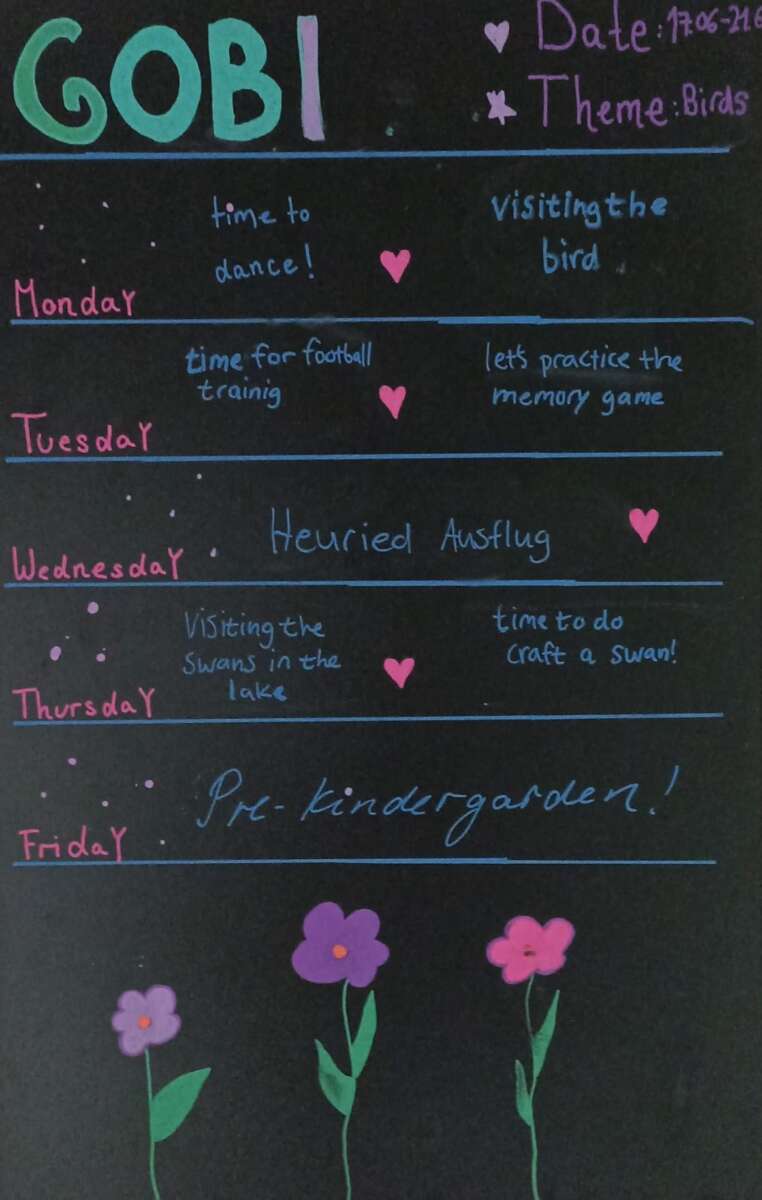 GOBI
Date: 17.06-21.6
Theme: Birds
time to
dance!
visiting the
bird
Monday
time for football
trainig
let's practice the
memory game
Tuesday
Heuried Ausflug
Wednesday
Visiting the
swans in the
lake
time to do
craft a swan!
Thursday
Pre-kindergarden!
Friday